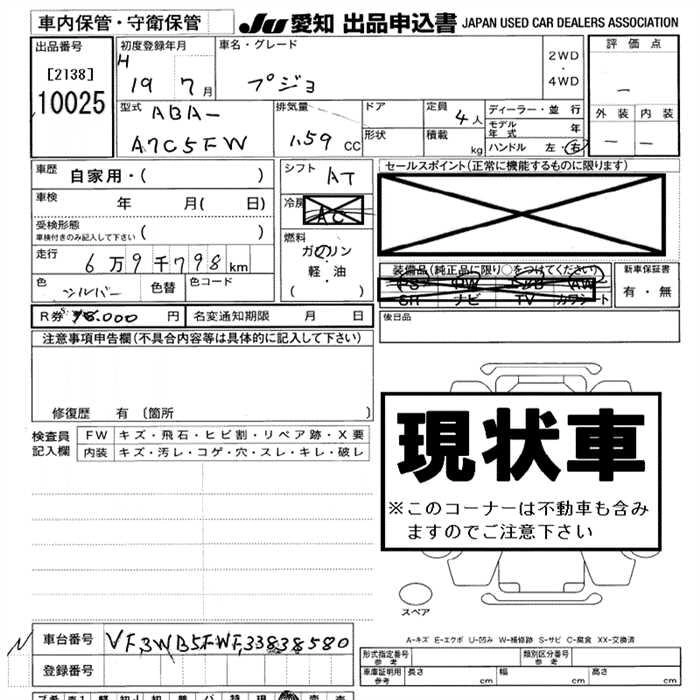 車内保管・守衛保管 JU 愛知 出品申込書 JAPAN USED CAR DEALERS ASSOCIATION
出品番号 初度登録年月 車名・グレード 2WD・4WD 評価点
[2138] H 19 7月 プジョ －
10025
型式 ABA- 排気量 ドア 定員 4人 ディーラー・並行 外装 内装
A7C5FW 1.59 CC 形状 積載 kg モデル年式 年 － －
ハンドル 左・右
車歴 自家用・( ) シフト AT セールスポイント(正常に機能するものに限ります)
車検 年 月( 日) 冷房 AC
受検形態 車検付きのみ記入して下さい ( ) 燃料
走行 6万9千798km ガソリン
軽・油
( )
装備品(純正品に限り○をつけてください) 新車保証書
PS PW AW 有・無
SR ナビ TV カワシート
色 シルバー 色替 色コード
R券 円 名変通知期限 月 日 後日品
注意事項申告欄(不具合内容等は具体的に記入して下さい)
修復歴 有 〔箇所 〕
検査員記入欄 FW キズ・飛石・ヒビ割・リペア跡・X要
内装 キズ・汚レ・コゲ・穴・スレ・キレ・破レ
現状車
※このコーナーは不動車も含み
ますのでご注意下さい
スペア
A-キズ E-エクボ U-凹み W-補修跡 S-サビ C-腐食 XX-交換済
車台番号 VF3WB5FWF33838580
登録番号
形式指定番号 参考 類別区分番号 参考
車庫証明用 参考 長さ cm 幅 cm 高さ cm